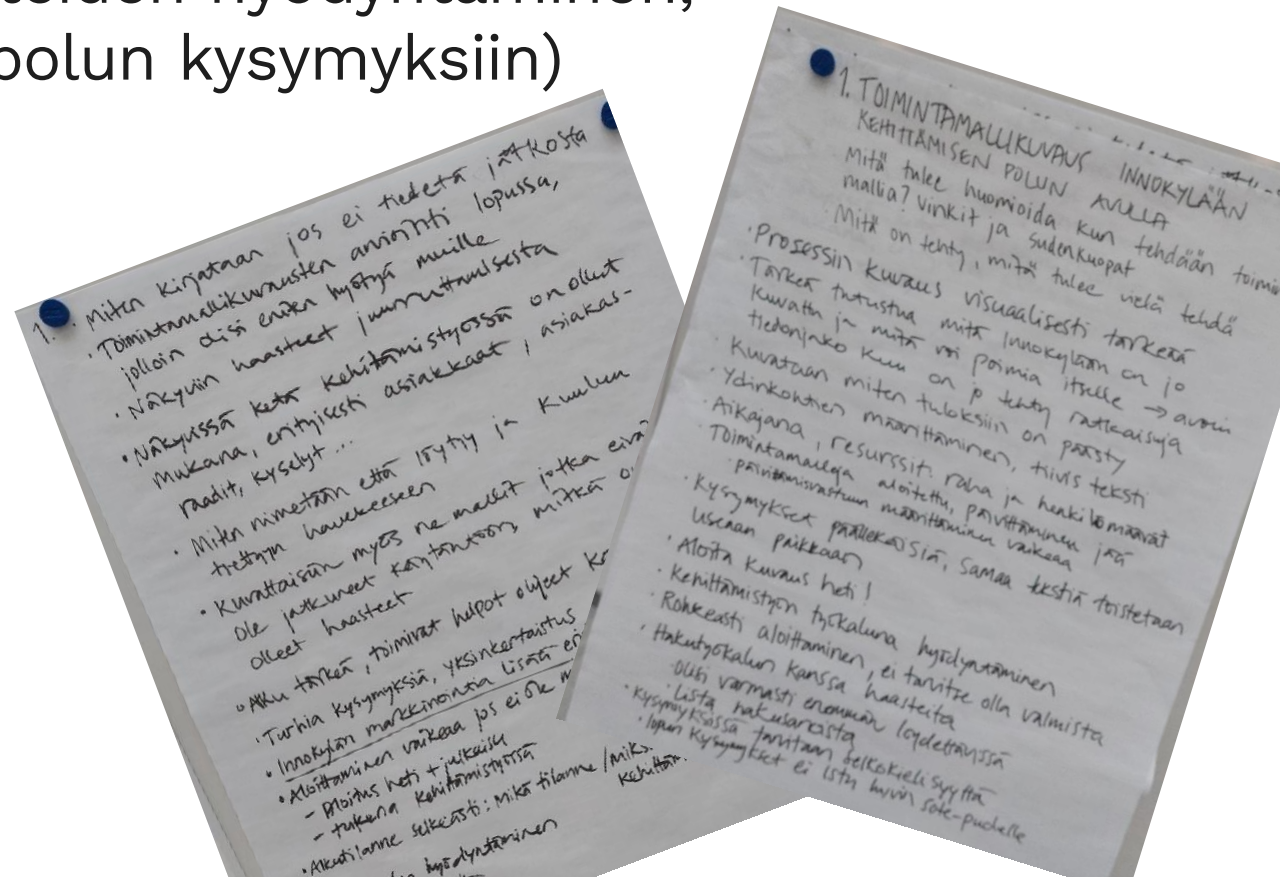 hyödyntäminen,
polun kysymyksiin)
1. · Miten kirjataan jos ei tiedetä jatkosta
· Toimintamallikuvausten arviointi lopussa,
jolloin olisi eniten hyötyä muille
· Näkyviin haasteet juurruttamisesta
· Näkyvissä ketä kehittämistyössä on ollut
mukana, erityisesti asiakkaat, asiakas-
raadit, kyselyt...
· Miten nimetään että löytyy ja kuuluu
tiettyyn hankkeeseen
· Kuvattaisiin myös ne mallit jotka eivät
ole jatkuneet käytäntöön, mitkä
olleet haasteet
· Alku tärkeä, toimivat helpot ohjeet
· Turhia kysymyksiä, yksinkertaistus
· Innokylän markkinointia lisätä
· Aloittaminen vaikeaa jos ei ole
- Aloitus heti + julkaisu
- tukena kehittämistyössä
· Alkutilanne selkeästi: Mikä tilanne / miks.
hyödyntäminen
1. TOIMINTAMALLIKUVAUS INNOKYLÄÄN
KEHITTÄMISEN POLUN AVULLA
Mitä tulee huomioida kun tehdään toimin
mallia? vinkit ja sudenkuopat
Mitä on tehty, mitä tulee vielä tehdä
· Prosessin kuvaus visuaalisesti tärkeää
· Tärkeä tutustua mitä Innokylään on jo
kuvattu ja mitä voi poimia itselle → avoin
tiedonjako kun on jo tehty ratkaisuja
· Kuvataan miten tuloksiin on päästy
· Ydinkohtien määrittäminen, tiivis teksti
· Aikajana, resurssit: raha ja henkilömäärät
· Toimintamalleja aloitettu, päivittäminen jää
päivittämisvastuun määrittäminen vaikeaa
· Kysymykset päällekäisiä, samaa tekstiä toistetaan
usean paikkaan
· Aloita kuvaus heti!
· Kehittämistyön työkaluna hyödyntäminen
· Rohkeasti aloittaminen, ei tarvitse olla valmista
· Hakutyökalun kanssa haasteita
olisi varmasti enemmän löydettävissä
· Lista hakusanoista
· Kysymyksissä tarvitaan selkokielisyyttä
· lopun kysymykset ei istu hyvin sote-puolelle